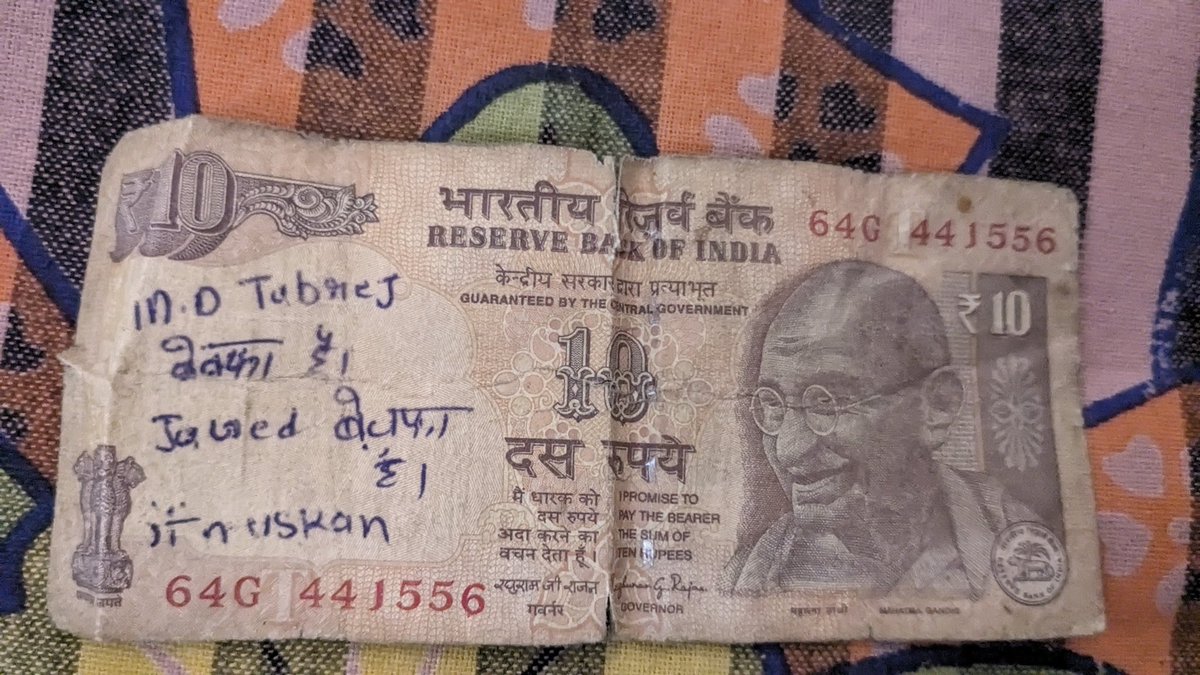 10
भारतीय रिज़र्व बैंक
RESERVE BANK OF INDIA
64G 441556
केन्द्रीय सरकार द्वारा प्रत्याभूत
GUARANTEED BY THE CENTRAL GOVERNMENT
₹10
M.D Tabrej
बेवफा है।
Javed बेवफा
है।
muskan
10
दस रुपये
मैं धारक को
दस रुपये
अदा करने का
वचन देता हूँ।
I PROMISE TO
PAY THE BEARER
THE SUM OF
TEN RUPEES
रघुराम जी. राजन
गवर्नर
GOVERNOR
64G 441556
महात्मा गांधी
MAHATMA GANDHI